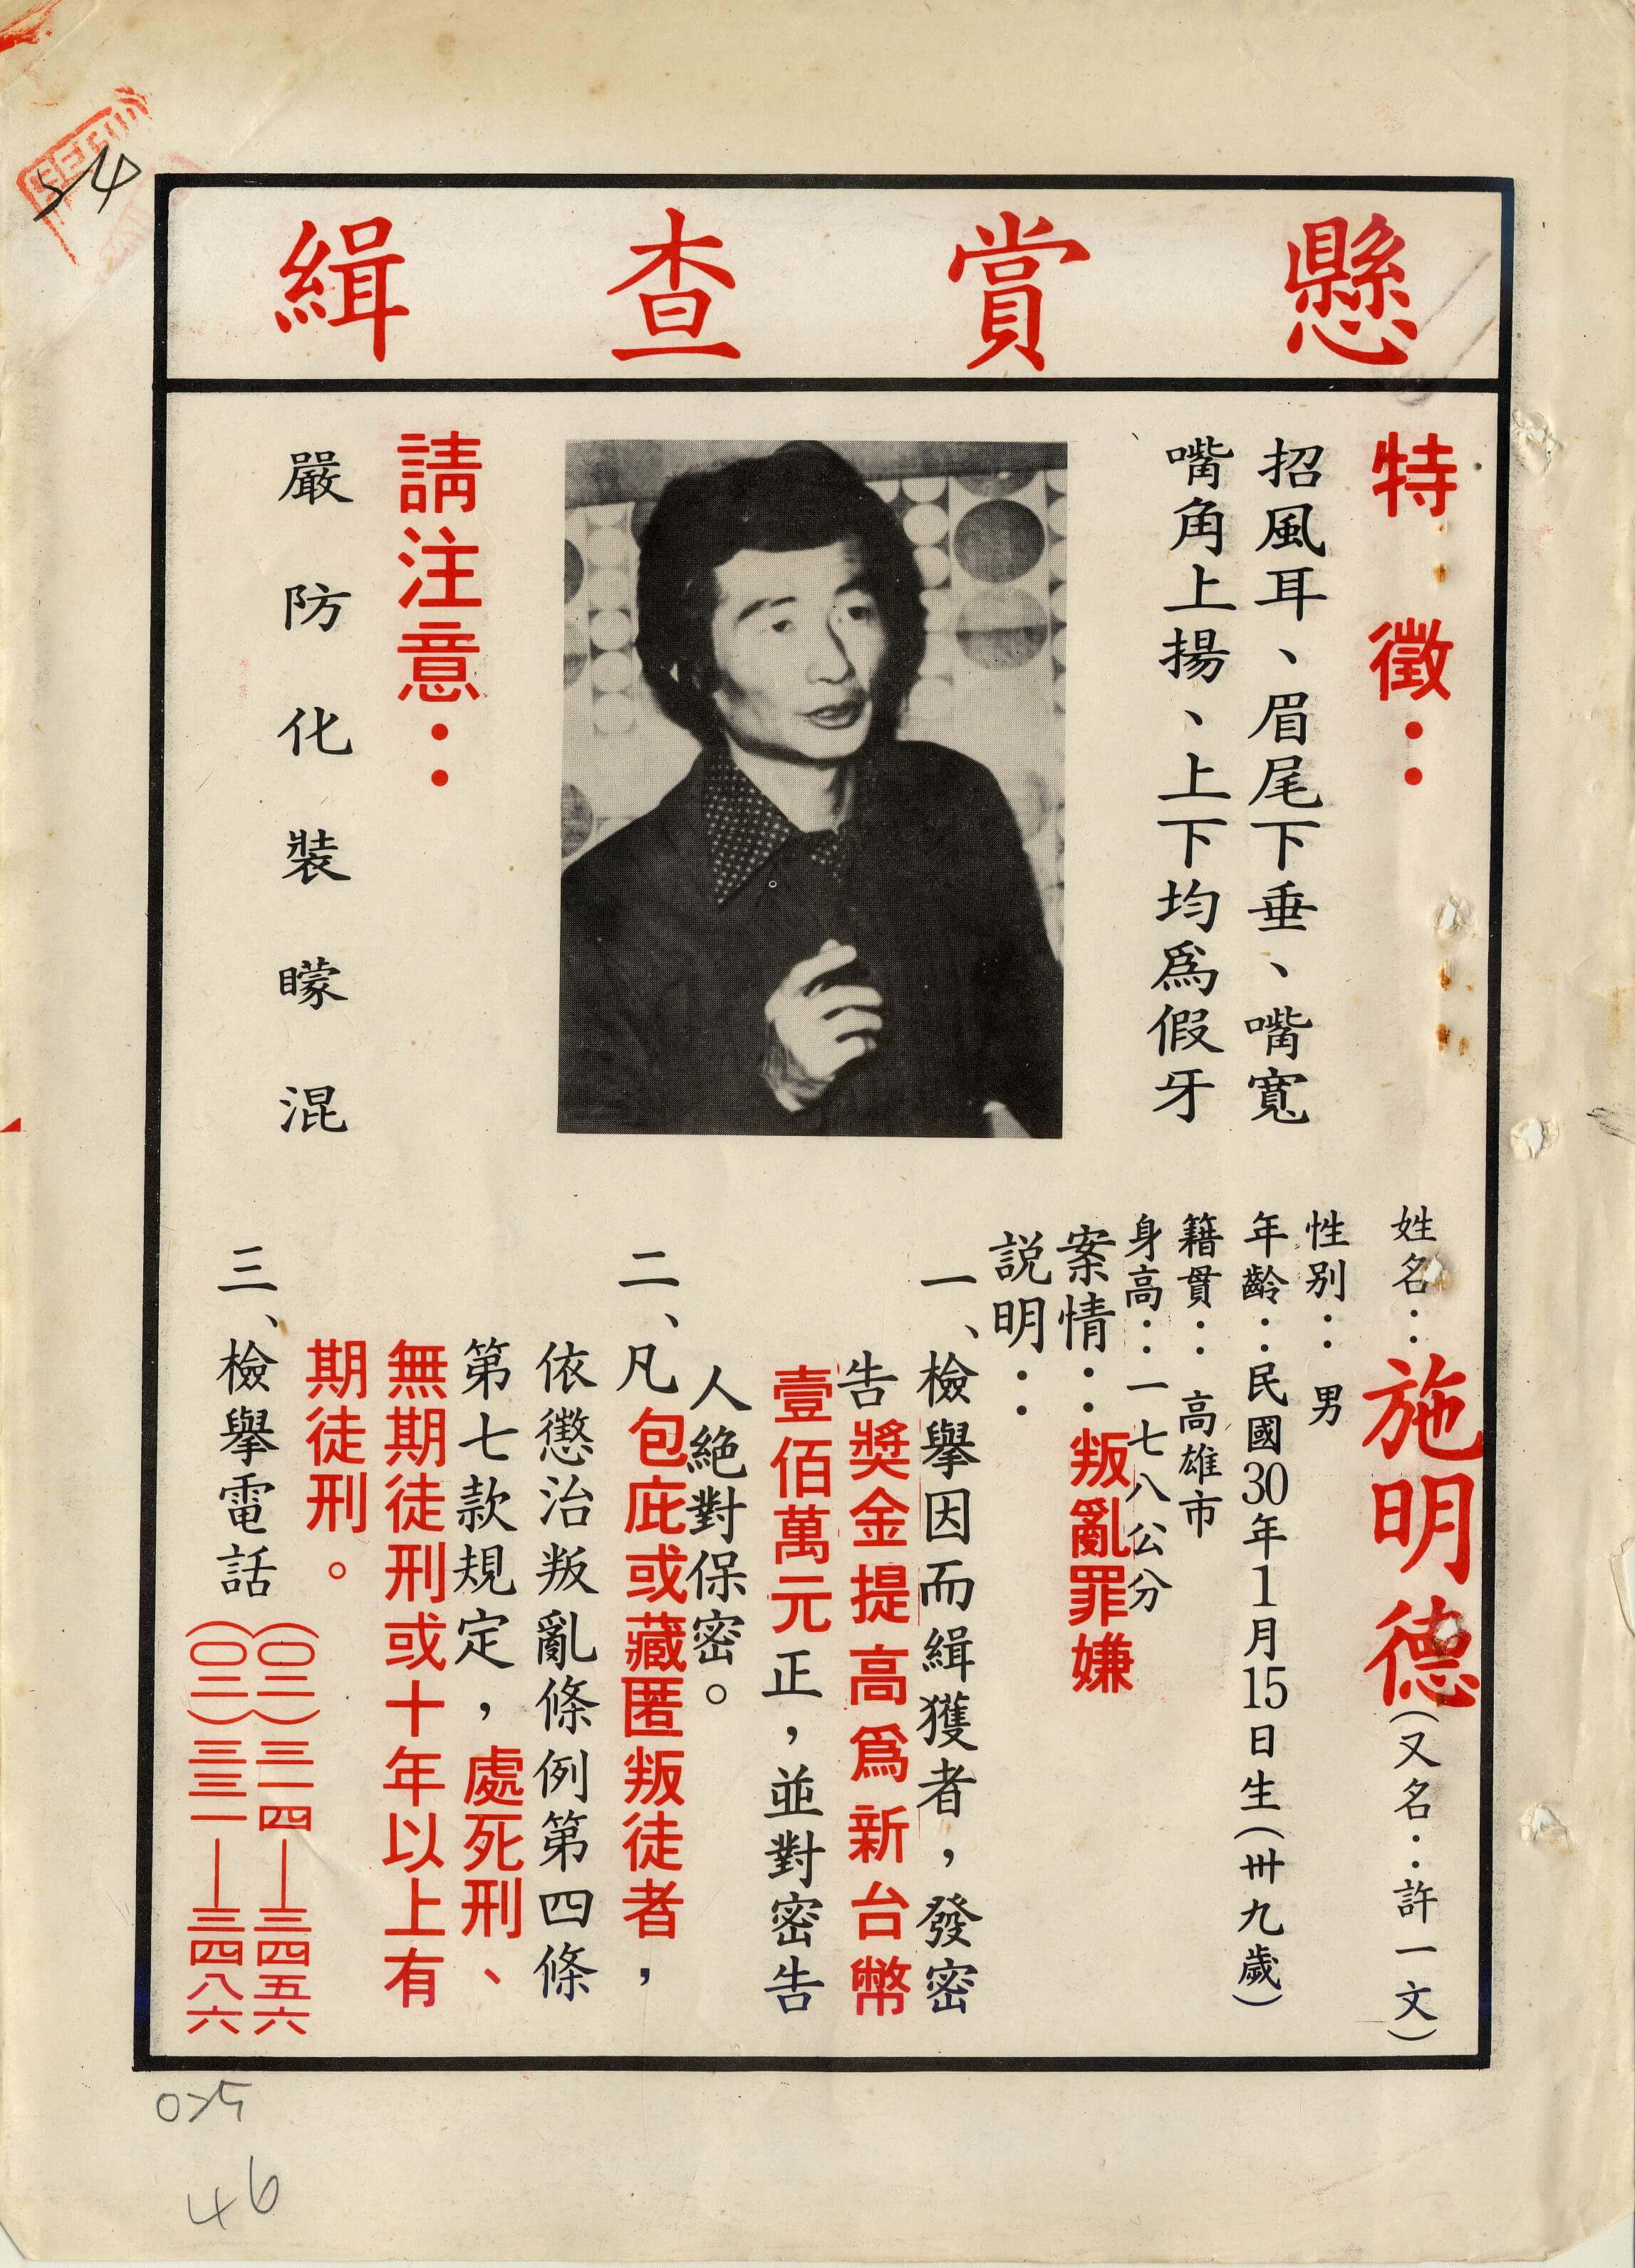 懸賞查緝
特徵：
招風耳、眉尾下垂、嘴寬
嘴角上揚、上下均為假牙
請注意：
嚴防化裝矇混
姓名：施明德（又名：許一文）
性別：男
年齡：民國30年1月15日生（卅九歲）
籍貫：高雄市
身高：一七八公分
案情：叛亂罪嫌
説明：
一、檢舉因而緝獲者，發密
告獎金提高為新台幣
壹佰萬元正，並對密告
人絕對保密。
二、凡包庇或藏匿叛徒者，
依懲治叛亂條例第四條
第七款規定，處死刑、
無期徒刑或十年以上有
期徒刑。
三、檢舉電話
（〇二）三一四—三四五六
（〇二）三三一—三四八六
54
46